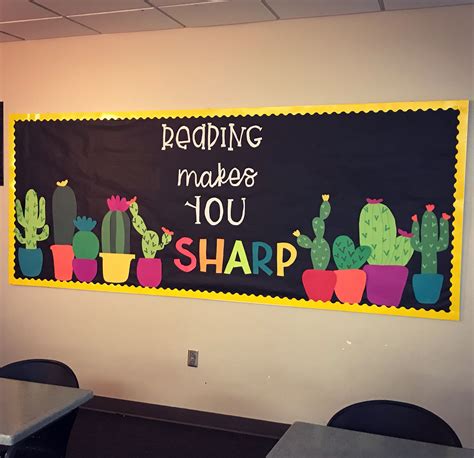 READING
makes
YOU
SHARP